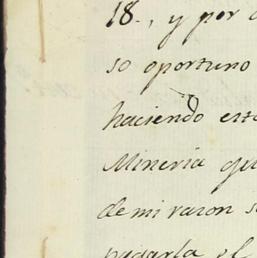 18., y por
so oportuno
haciendo est
Mineria qu
de mi razon s
pagarla el